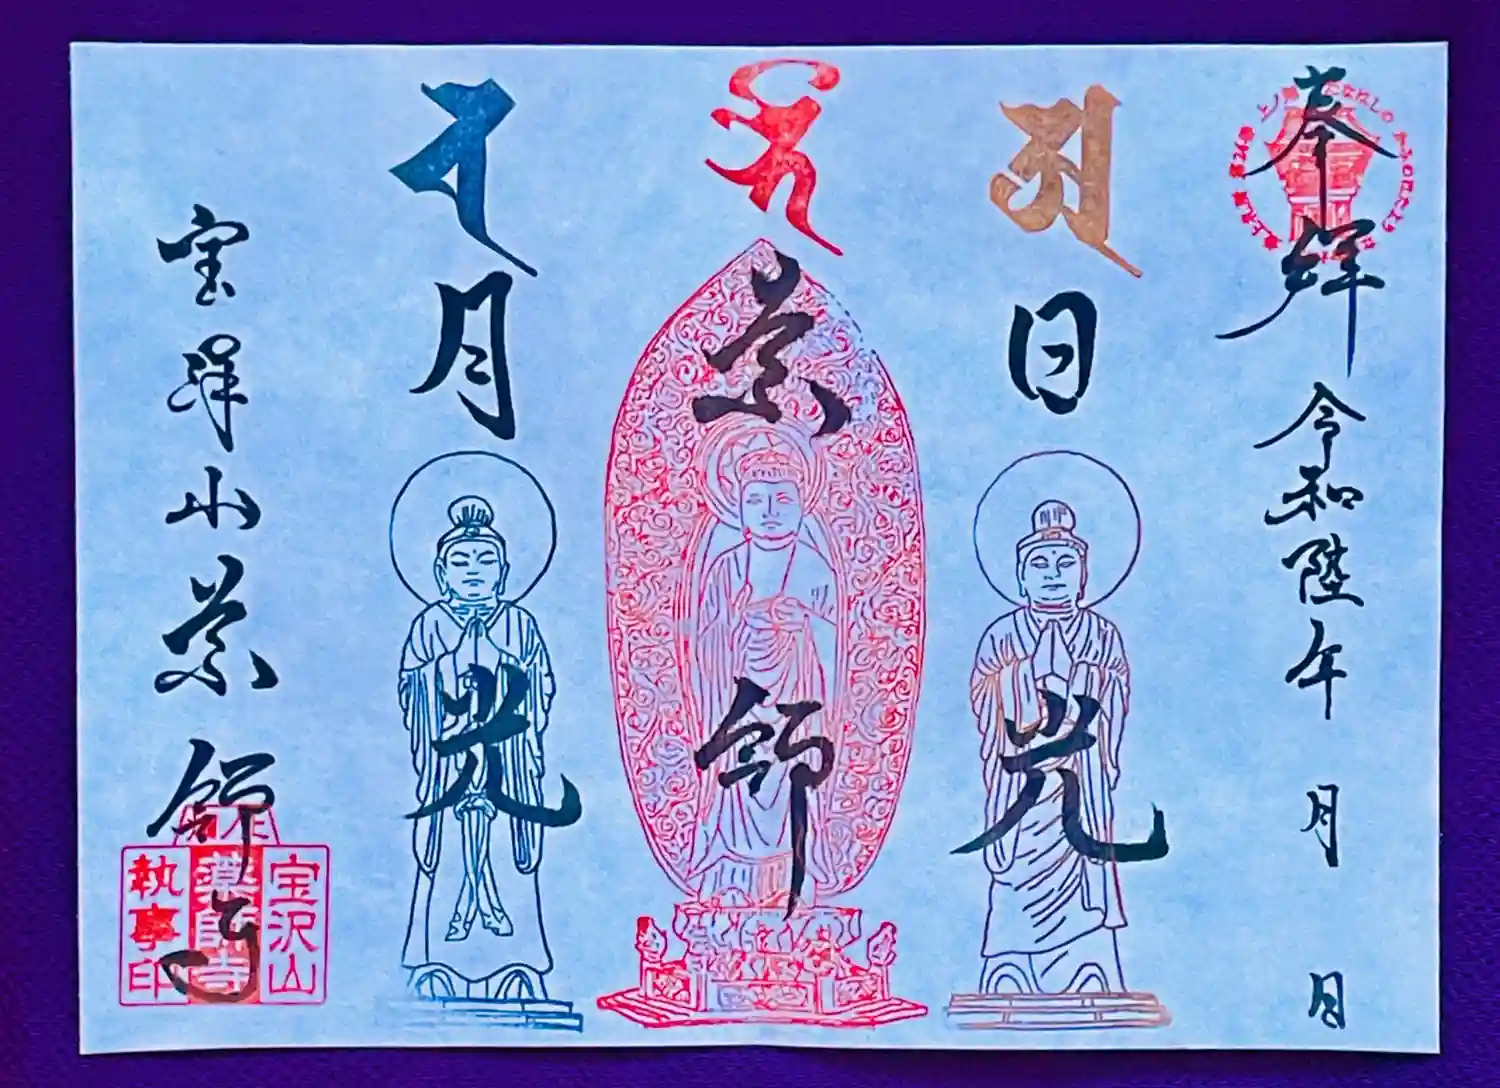 奉拝
令和陸年 月 日
日光
薬師
月光
宝沢山薬師寺
宝沢山
薬師寺
執事印